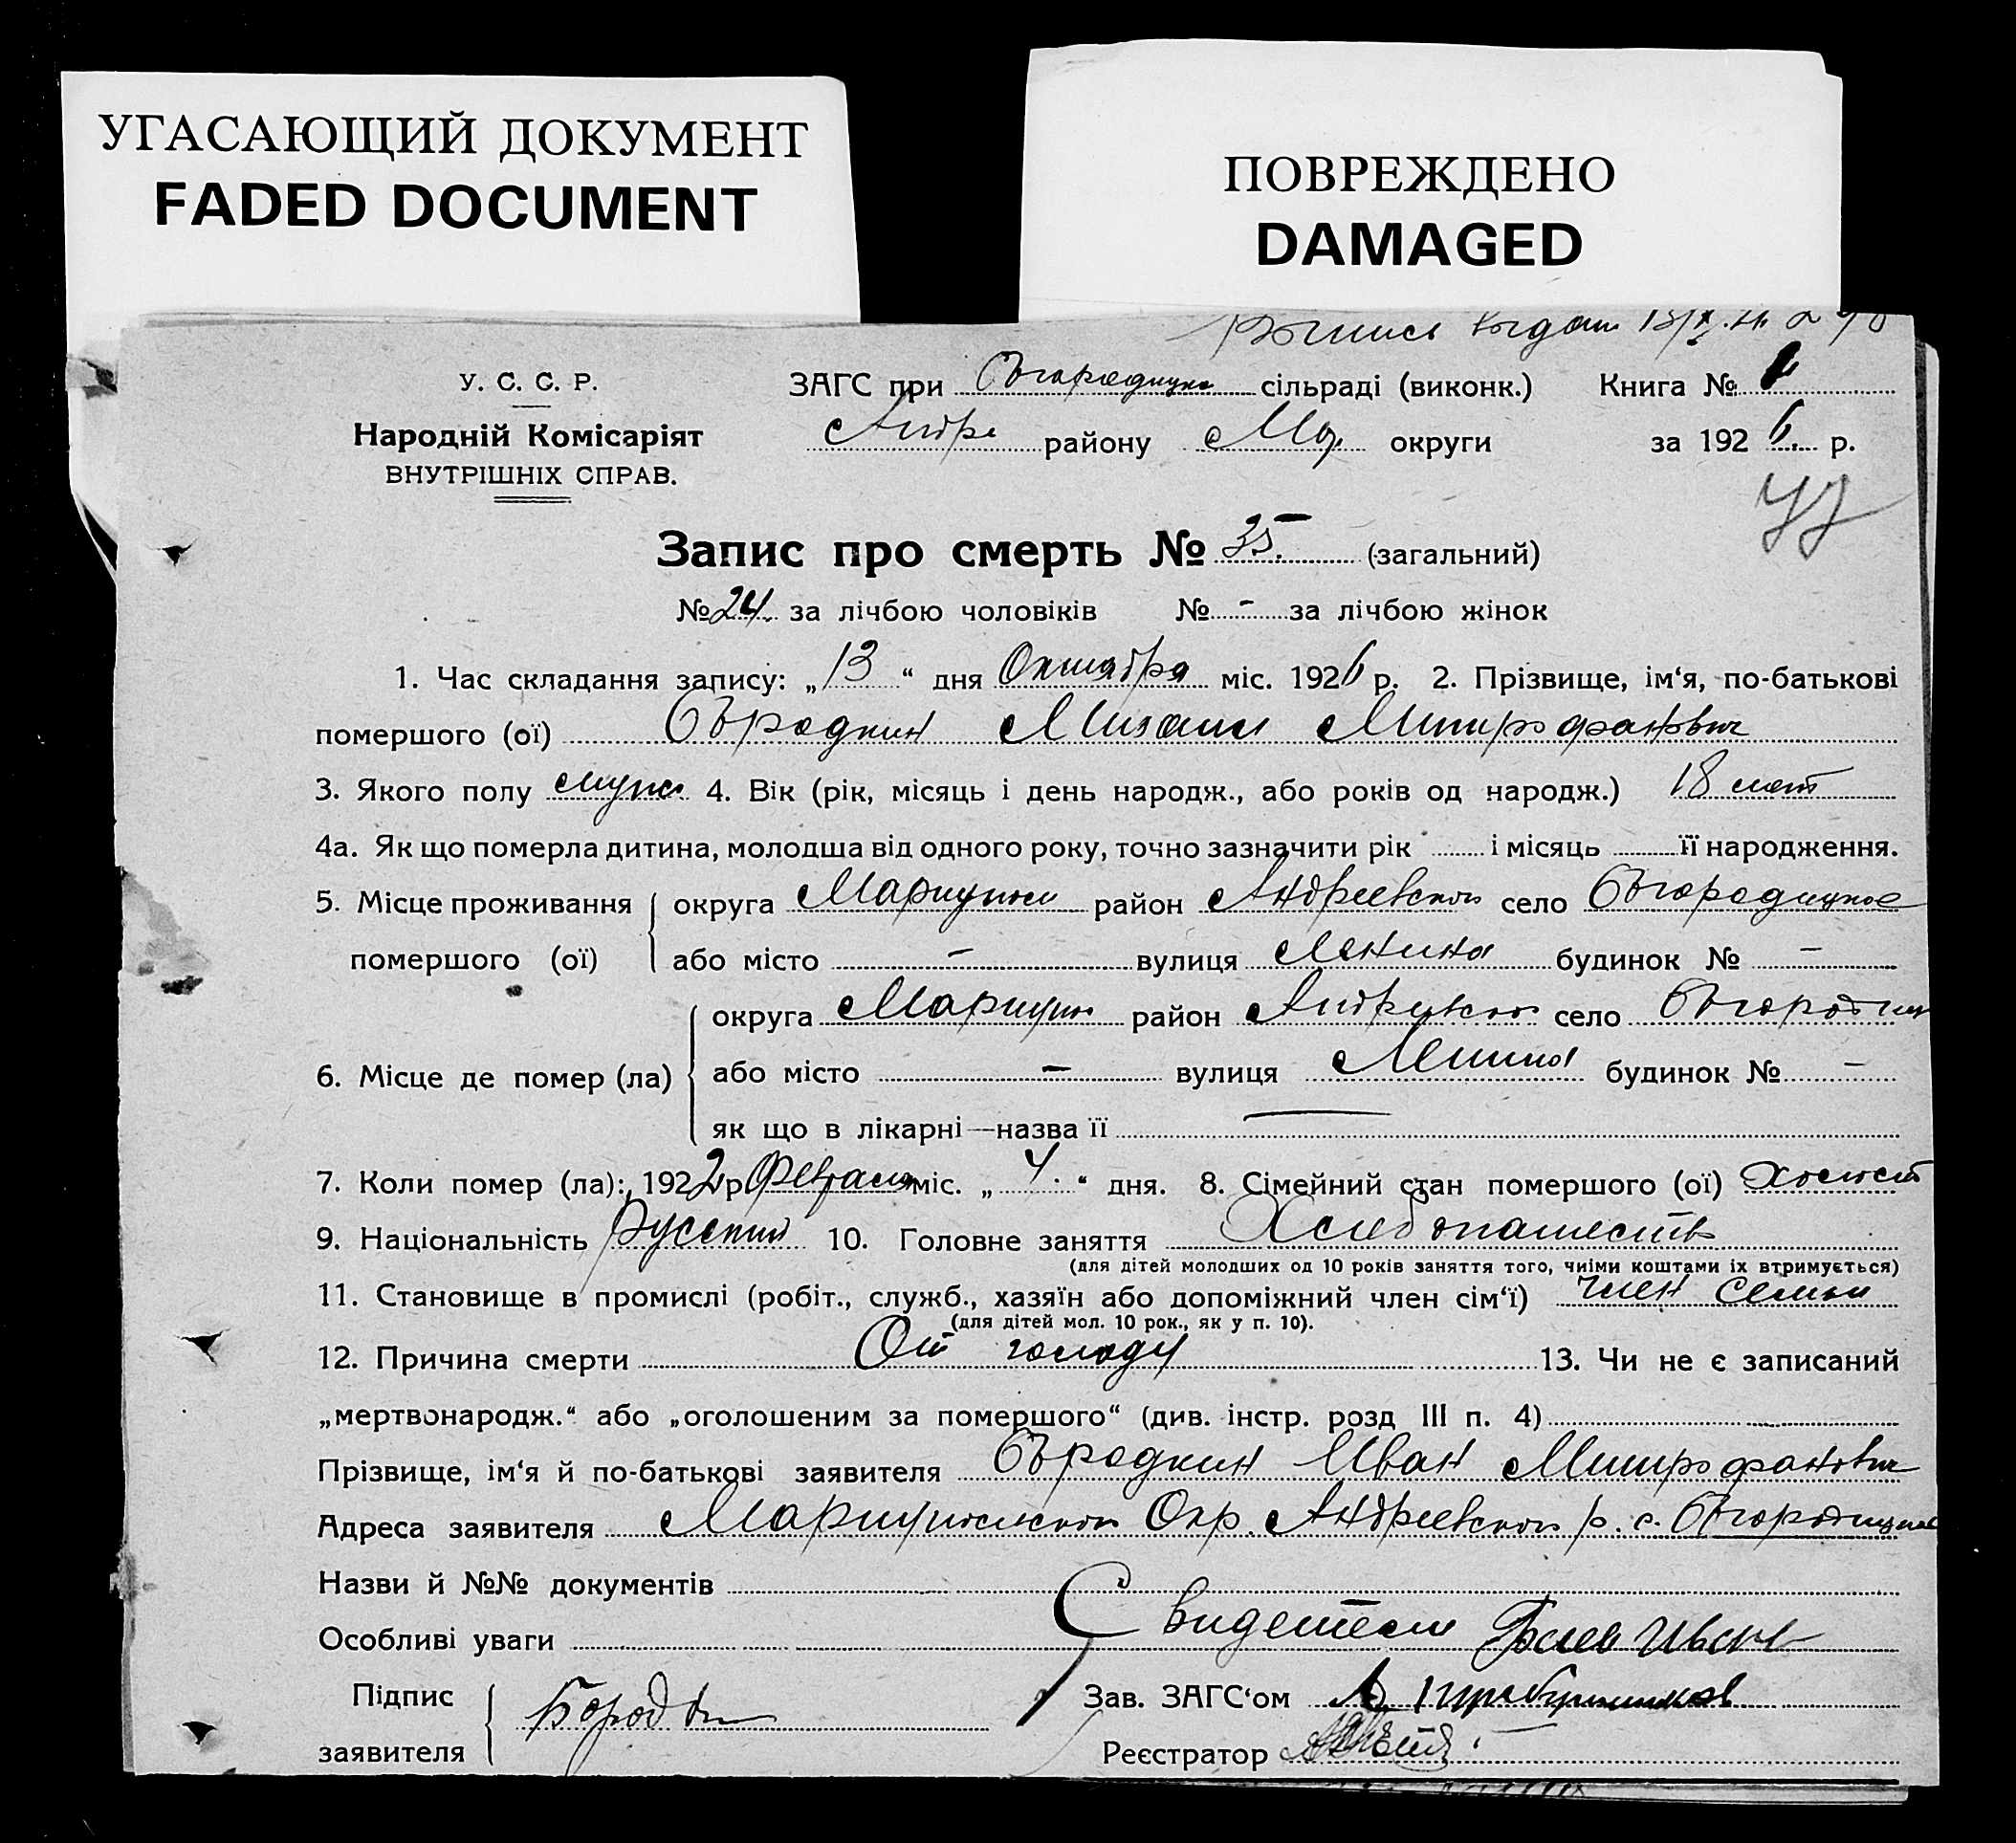 УГАСАЮЩИЙ ДОКУМЕНТ
FADED DOCUMENT
ПОВРЕЖДЕНО
DAMAGED
У. С. С. Р.
Народній Комісаріят
ВНУТРІШНІХ СПРАВ.
ЗАГС при Богородицко сільраді (виконк.) Книга №
Андре району Мар. округи за 1926. р.
Запис про смерть № 35. (загальний)
№ 24. за лічбою чоловіків № - за лічбою жінок
1. Час складання запису: „13“ дня Октября міс. 1926 р. 2. Прізвище, ім‘я, по-батькові
помершого (ої) Бородкин Митрофанович
3. Якого полу муж. 4. Вік (рік, місяць і день народж., або років од народж.) 18 лет
4а. Як що померла дитина, молодша від одного року, точно зазначити рік і місяць її народження.
5. Місце проживання помершого (ої) округа Мариупол район Андреевского село Богородицкое
або місто - вулиця Ленина будинок № -
6. Місце де помер (ла) округа Мариуп район Андреевског село Богородицк
або місто - вулиця Ленина будинок № -
як що в лікарні—назва її —
7. Коли помер (ла): 1922 р Февраля міс. „4.“ дня. 8. Сімейний стан помершого (ої) Холост
9. Національність Русский 10. Головне заняття Хлебопашеств
(для дітей молодших од 10 років заняття того, чиїми коштами їх втримується)
11. Становище в промислі (робіт., служб., хазяїн або допоміжний член сім‘ї) член семьи
(для дітей мол. 10 рок., як у п. 10).
12. Причина смерти От голоду 13. Чи не є записаний
„мертвонародж.“ або „оголошеним за помершого“ (див. інстр. розд III п. 4)
Прізвище, ім‘я й по-батькові заявителя Бородкин Иван Митрофанович
Адреса заявителя Мариупольског Окр. Андреевског р. с. Богородицкое
Назви й №№ документів
Особливі уваги Свидетели Иван
Підпис заявителя
Зав. ЗАГС‘ом
Реєстратор